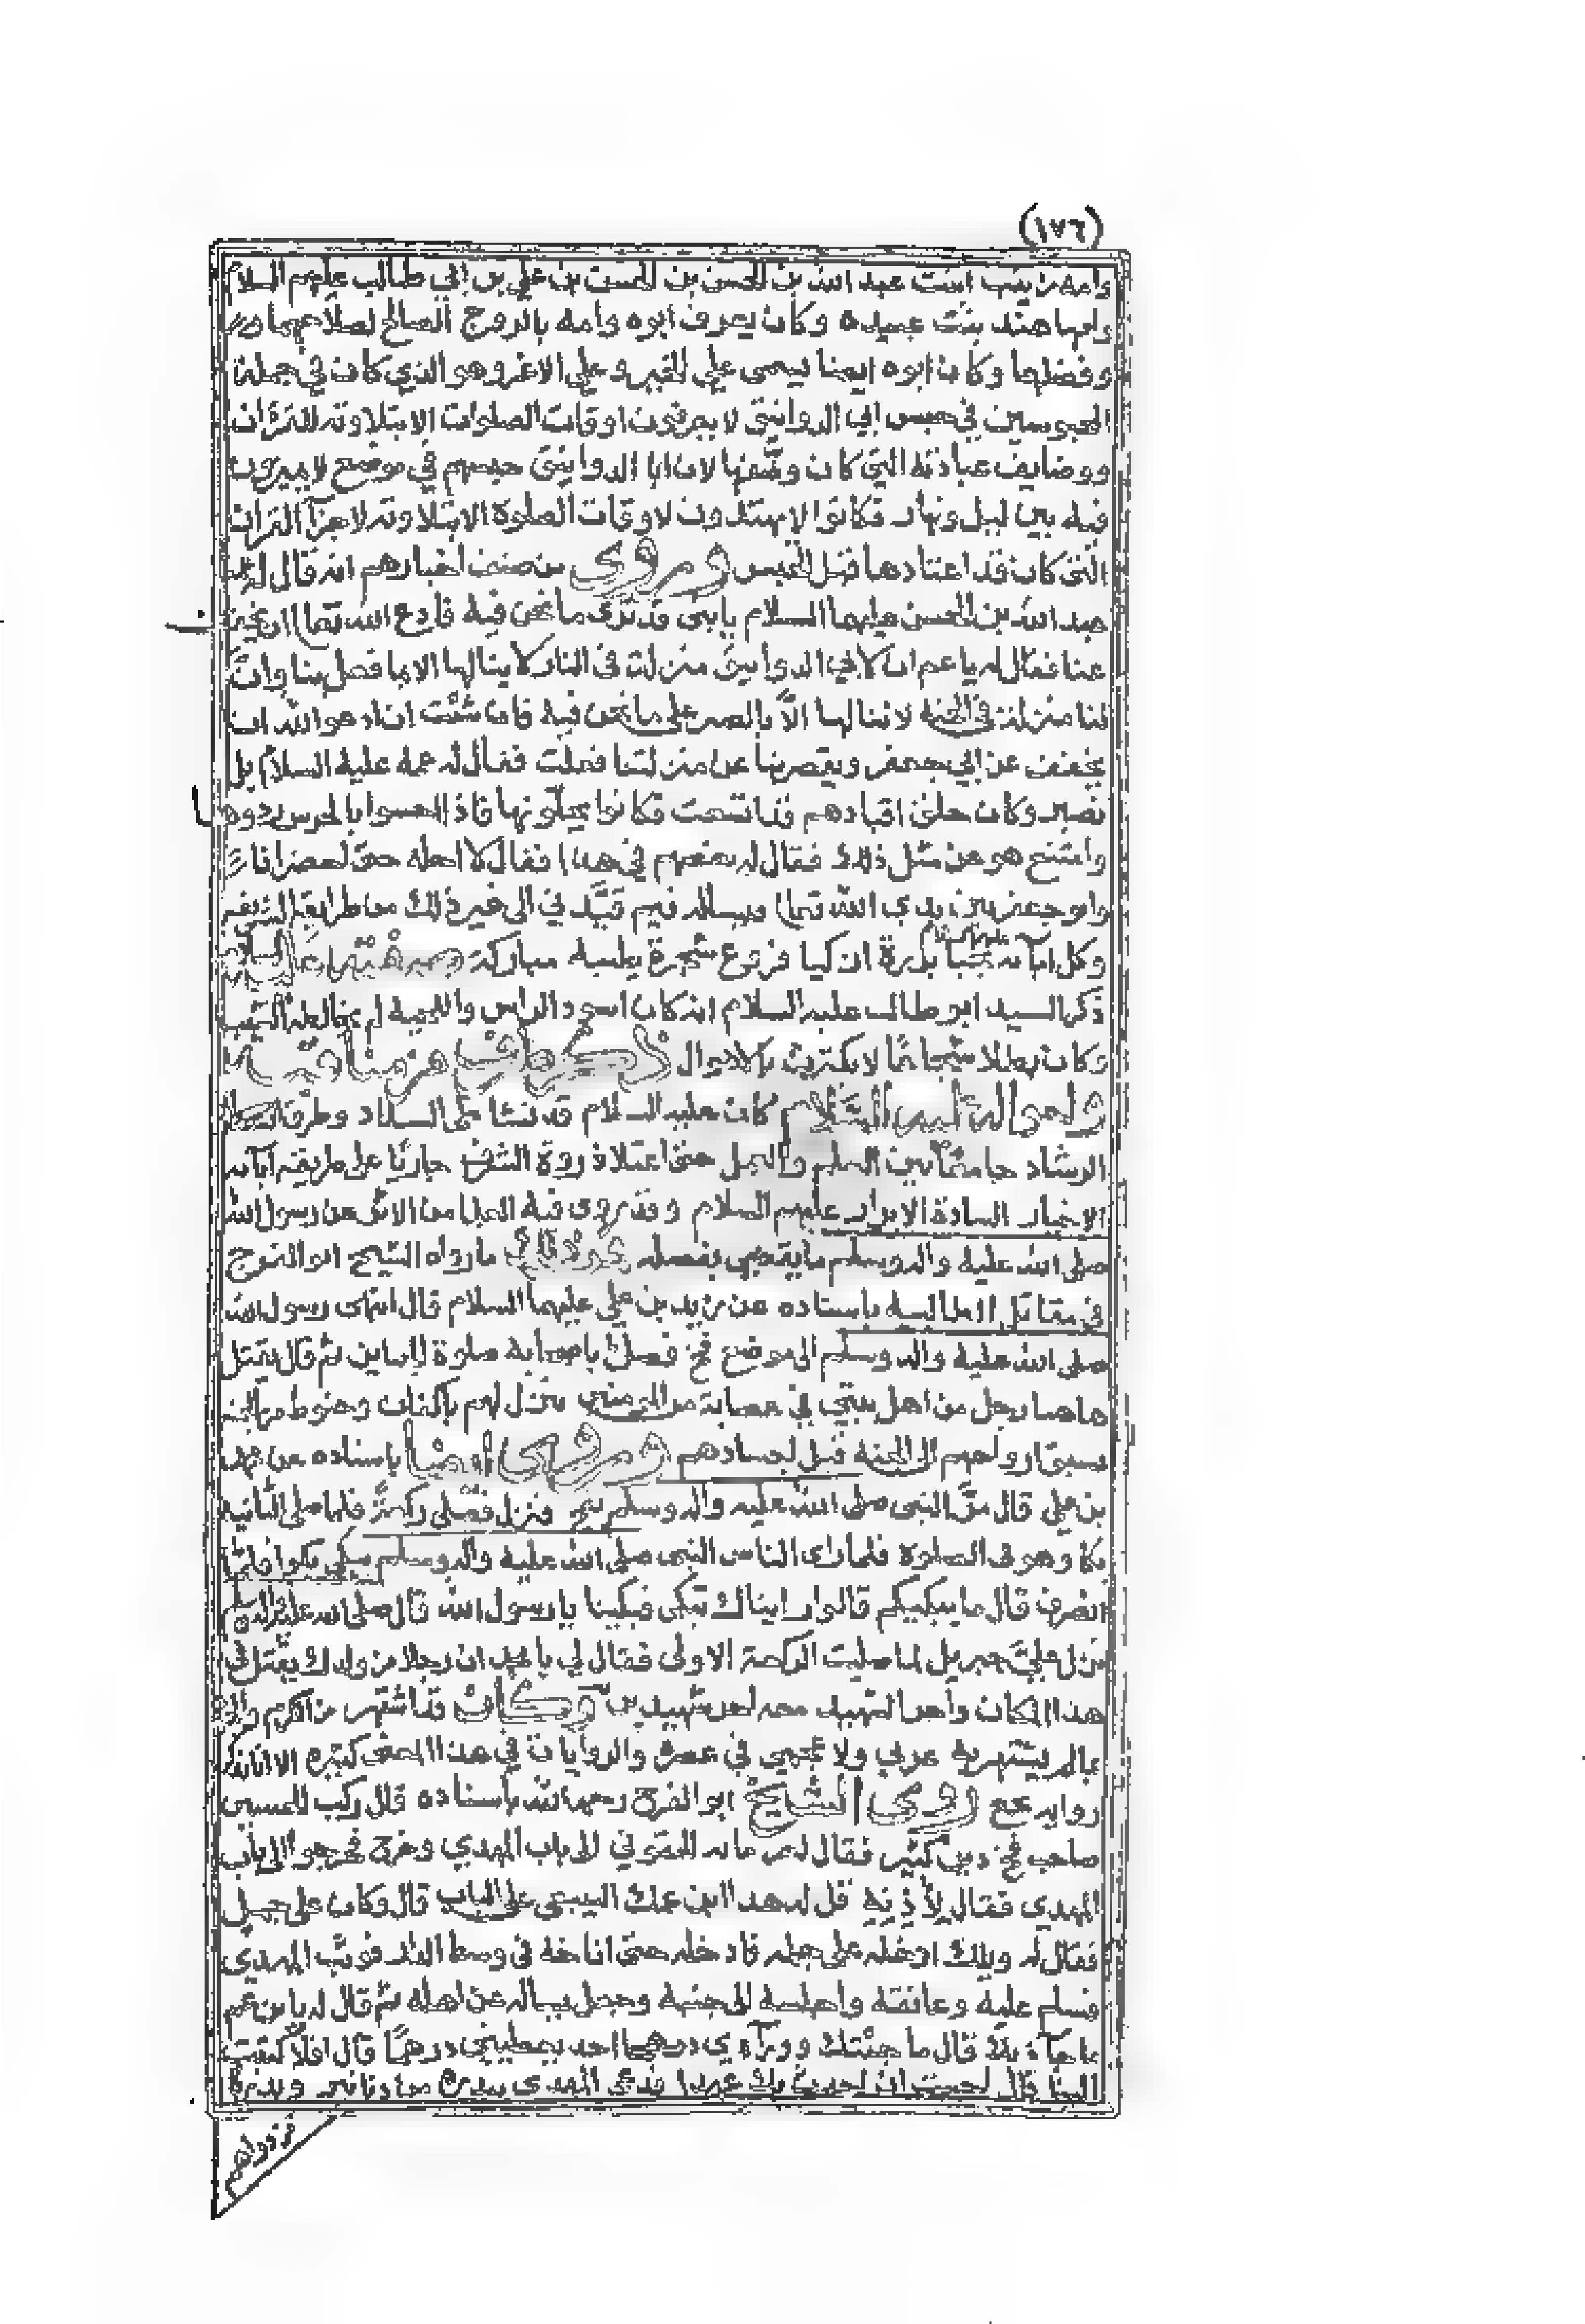 (١٧٦)
وامه زينب ابنت عبد الله بن الحسن بن الحسن بن علي بن ابي طالب عليهم السلام
وامها هند بنت عبيدة وكان يعرف ابوه وامه بالزوج الصالح لصلاحهما
وفضلهما وكان ابوه ايضا يسمى علي الخير وعلي الاغر وهو الذي كان في جملة
المحبوسين في حبس ابي الدوانيق لا يعرفون اوقات الصلوات الا بتلاوته القرآن
ووضايف عبادته التي كان وضفها لان ابا الدوانيق حبسهم في موضع لا يميزون
فيه بين ليل ونهار فكانوا لا يهتدون لاوقات الصلوة الا بتلاوته لاجزآ القرآن
التي كان قد اعتادها قبل الحبس وروى من صنف اخبارهم انه قال له
عبد الله بن الحسن عليهما السلام يابني قد ترى ما نحن فيه فادع الله تعا ان يخفف
عنا فقال له ياعم ان لابي الدوانيق منزلة في النار لا ينالها الا بما فعل بنا وان
لنا منزلة في الجنة لا ننالها الا بالصبر على ما نحن فيه فان شئت ان ادعو الله ان
يخفف عن ابي جعفر ويقصر بنا عن منزلتنا فعلت فقال له عمه عليه السلام بل
نصبر وكان حلق اقيادهم قد اتسعت فكانوا يحلونها فاذا احسوا بالحرس ردوها
وامتنع هو من مثل ذلك فقال له بعضهم في هذا فقال لا احله حتى احضر انا
وابو جعفر بين يدي الله تعا ويسأله فيم قيدني الى غير ذلك من طرايقه
وكل ابآئه عليهم السلام بررة ازكيا فروع شجرة طيبة مباركة صفته عليه السلام
ذكر السيد ابو طالب عليه السلام انه كان اسود الراس واللحية لم يخالطه الشيب
وكان بطلا شجاعا لا يكترث بالاهوال ذكر طرف من مناقبه
واحواله عليه السلام كان عليه السلام قد نشا على السداد وطرقات
الرشاد جامعا بين العلم والعمل حتى اعتلا ذروة الشرف جاريا على طريقه ابآئه
الاخيار السادة الابرار عليهم السلام وقد روى فيه العلما من الاثر عن رسول الله
صلى الله عليه واله وسلم ما يقضي بفضله فمن ذلك ما رواه الشيخ ابو الفرج
في مقاتل الطالبيه باسناده عن زيد بن علي عليهما السلام قال انتهى رسول الله
صلى الله عليه واله وسلم الى موضع فخ فصلى باصحابه صلوة الجنازة ثم قال يقتل
هاهنا رجل من اهل بيتي في عصابة من المؤمنين ينزل لهم باكفان وحنوط من الجنه
تسبق ارواحهم الى الجنة قبل اجسادهم وروى ايضا باسناده عن محمد
بن علي قال مر النبي صلى الله عليه واله وسلم بفخ فنزل فصلى ركعة فلما صلى الثانية
بكا وهو في الصلوة فلما راى الناس النبي صلى الله عليه واله وسلم يبكي بكوا فلما
انصرف قال ما يبكيكم قالوا رايناك تبكي فبكينا يا رسول الله قال صلى الله عليه واله وسلم
نزل علي جبريل لما صليت الركعة الاولى فقال لي يا محمد ان رجلا من ولدك يقتل في
هذا المكان واجر الشهيد معه اجر شهيدين وكان قد اشتهر من الكرم
بما لم يشتهر به عربي ولا عجمي في عصره والروايات في هذا المعنى كثيره الا انا
روى الشيخ ابو الفرج رحمه الله باسناده قال ركب الحسين
صاحب فخ دين كثير فقال لغرمائه الحقوني الى باب المهدي وخرج الى باب
المهدي فقال لآذنه قل له هذا ابن عمك الينبعي على الباب قال وكان على جمل
فقال له ويلك ادخله على جمله فادخله حتى اناخه في وسط الدار فوثب المهدي
فسلم عليه وعانقه واجلسه الى جنبه وجعل يسأله عن اهله ثم قال له يا بن عم
ما جآء بك قال ما جئتك وورآءي احد يعطيني درهما قال افلا كتبت
الينا قال احببت ان احدث بك عهدا فدعى المهدي ببدرة دنانير وبدرة
من دراهم